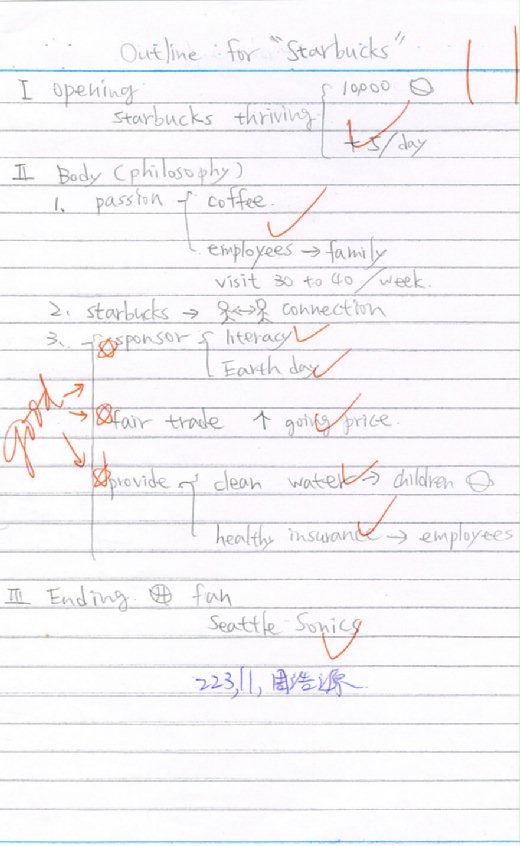 Outline for "Starbucks"
I opening
10,000
starbucks thriving
+5/day
II Body (philosophy)
1. passion coffee.
employees → family
visit 30 to 40/week.
2. starbucks → ↔ connection
3. sponsor literacy
Earth day
good
fair trade ↑ going price.
provide clean water → children
healthy insurance → employees
III Ending. fan
Seattle Sonics
223,11, 周浩源